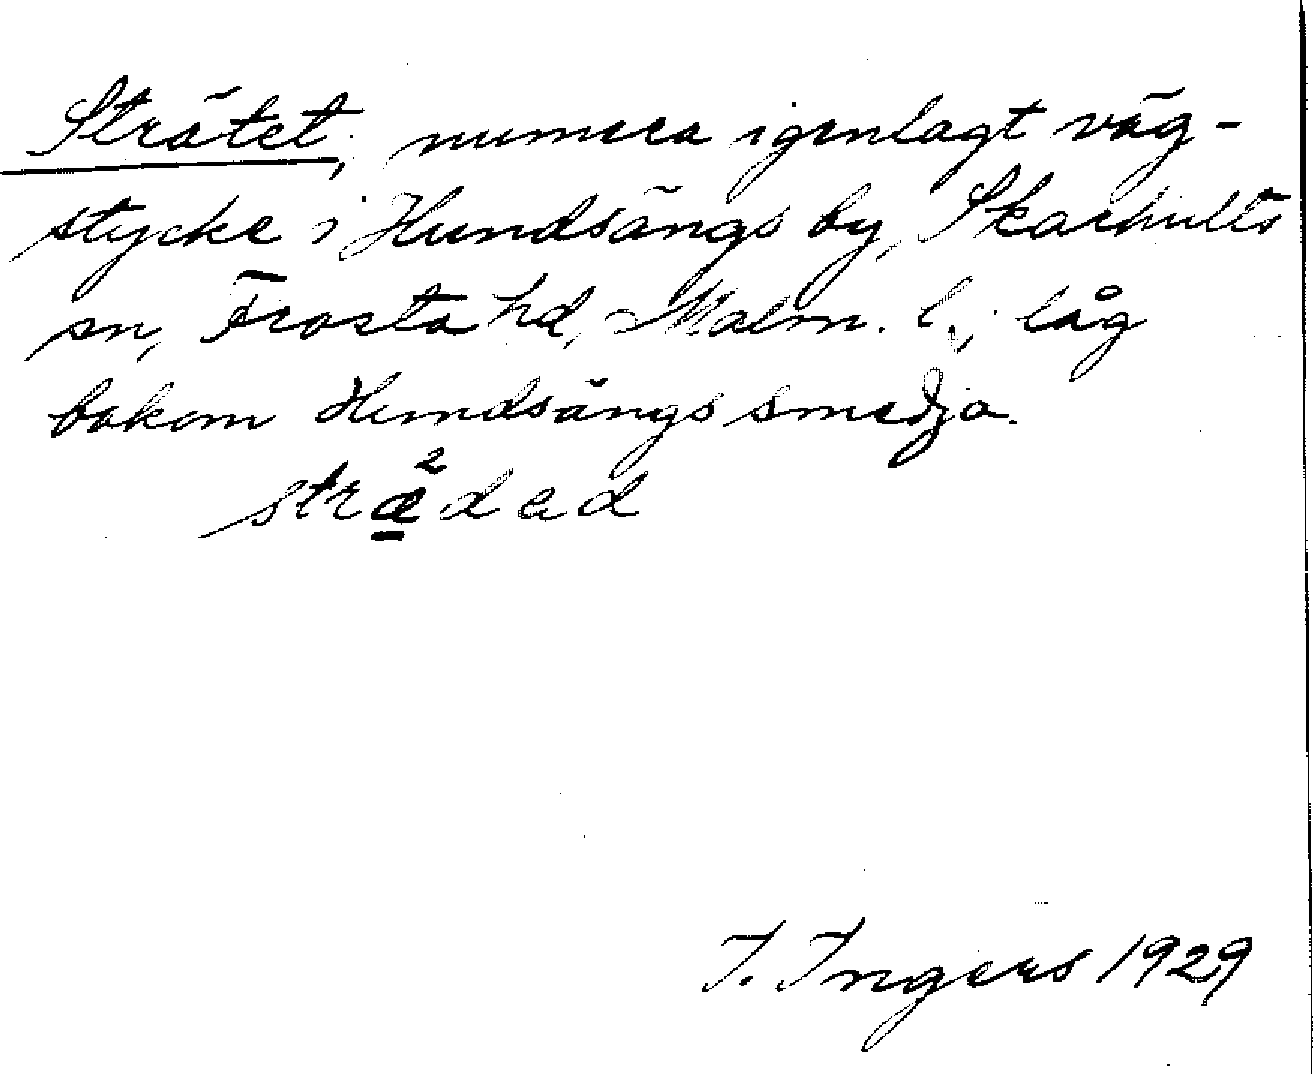 Strätet; numera igenlagt väg-
stycke i Hundsängs by, Skarhults
sn, Frosta hd, Malm. l.; låg
bakom Hundsängs smedja.
stræ²dad
I. Ingers 1929